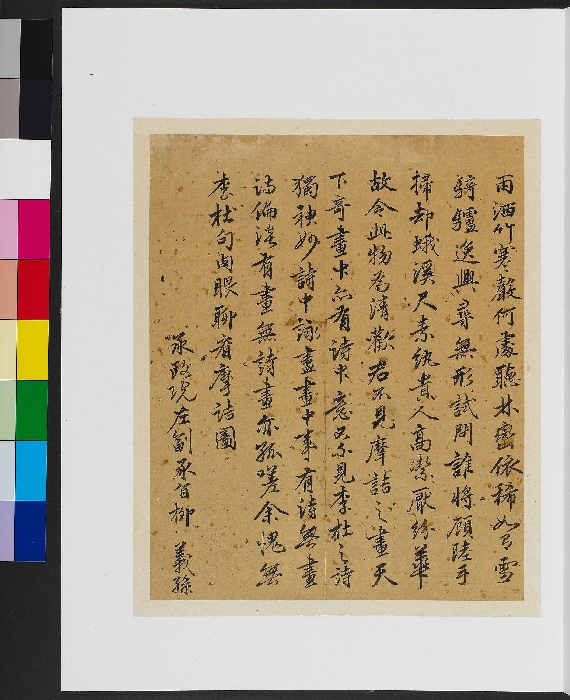 雨洒竹寒聲何處聽林密依稀如有雪
騎驢逸興尋無形試問誰將顧陸手
掃却蛾溪尺素紈貴人高絜厭紛華
故令此物為清歡君不見摩詰之畫天
下奇畫中亦有詩中意又不見李杜之詩
獨神妙詩中詠盡畫中事有詩無畫
詩偏淡有畫無詩畫亦孤嗟余愧無
李杜句由眼聊看摩詰圖
承政院左副承旨柳義孫